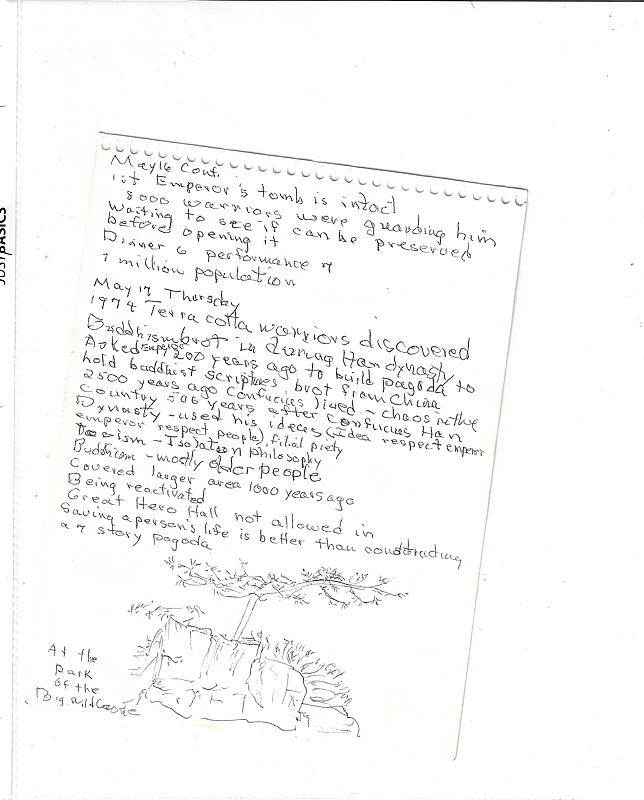 May 16 Cont.
1st Emperor's tomb is intact
8000 warriors were guarding him
Waiting to see if can be preserved
before opening it
Dinner & performance
7 million population
May 17 Thursday
1974 Terra cotta warriors discovered
Buddhism brot in during Han dynasty
Asked Emperor 1200 years ago to build pagoda to
hold buddhist scriptures brot from China
2500 years ago Confucius lived - chaos in the
country 500 years after Confucius Han
Dynasty - used his ideas (idea respect emperor
emperor respect people), filial piety
Taoism - Isolation philosophy
Buddhism - mostly older people
Covered larger area 1000 years ago
Being reactivated
Great Hero Hall not allowed in
Saving a person's life is better than constructing
a 7 story pagoda
At the
Park
of the
Big Wild Goose
JUST BASICS